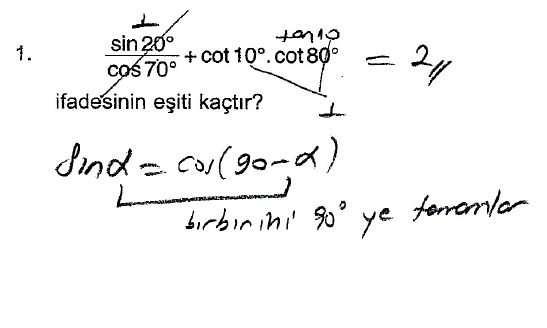 1 tan10
1. sin 20° / cos 70° + cot 10° . cot 80° = 2
ifadesinin eşiti kaçtır? 1
Sinα = cos(90-α)
birbirini 90° ye tamamlar